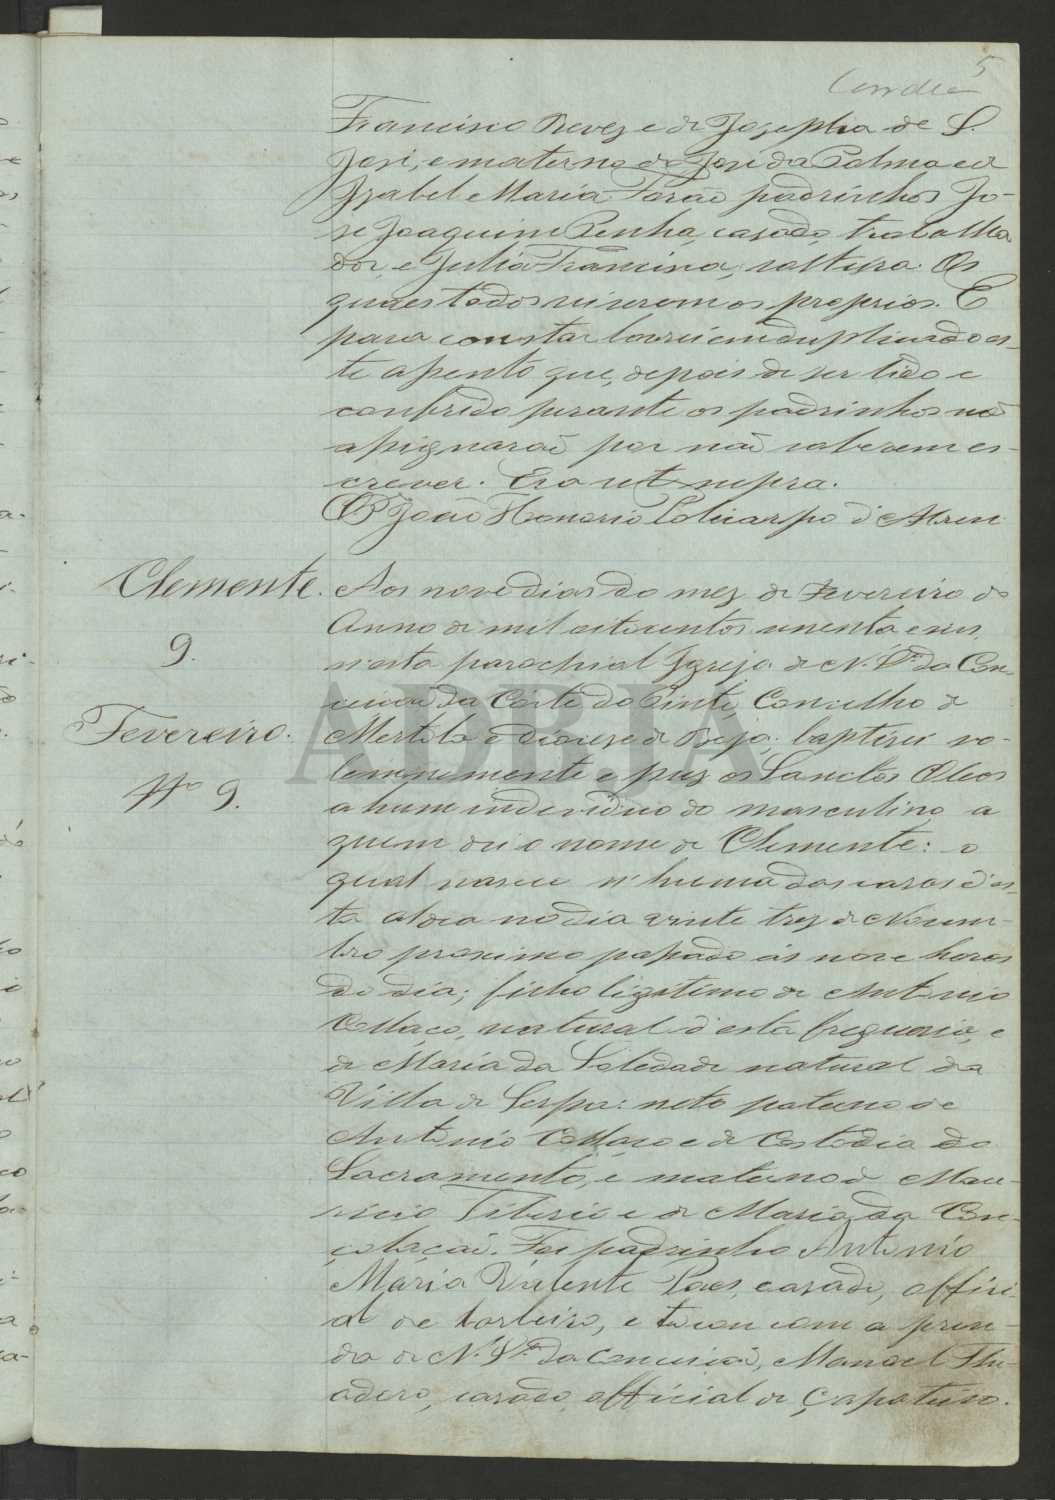 5
Francisco Revez e de Josepha de S.
José, e materno de José da Palma e d'
Izabel Maria Forão padrinhos Jo-
se Joaquim Penha, casado, trabalha
dor, e Julia Francina, solteira. Os
quaes todos sei serem os proprios. E
para constar lavrei em duplicado es-
te assento que, depois de ser lido e
conferido perante os padrinhos não
assignarão por não saberem es-
crever. Era ut supra.
O P. João Honorio Policarpo d'Abreu
Clemente.
9.
Fevereiro.
Nº 9.
Aos nove dias do mez de Fevereiro do
Anno de mil oitocentos e seis
n'esta parochial Igreja de N. Sª da Con-
ceição da Corte do Pinto, Concelho de
Mertola e diocese de Beja, baptizei so-
lemnemente e puz os Sanctos Oleos
a hum individuo do masculino a
quem dei o nome de Clemente: o
qual nasceu n'huma das casas d'es-
ta aldea no dia vinte trez de Novem-
bro proximo passado ás nove horas
do dia; filho ligitimo de Antonio
Collaço, natural d'esta freguesia, e
de Maria da Soledade natural da
Villa de Serpa: neto paterno de
Antonio Collaço e de Custodia do
Sacramento, e materno de Mau-
ricio Tiberio e de Maria da Con-
solação. Foi padrinho Antonio
Maria Vicente Paes, casado, offici-
al de barbeiro, e tocou com a pren-
da de N. Sª da Conceição, Manoel
casado, official de Çapateiro.
ADBJA